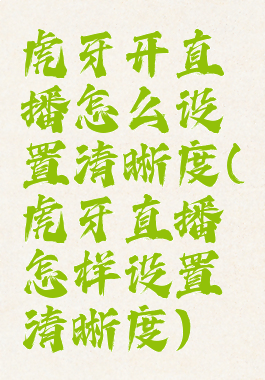 虎牙开直
播怎么设
置清晰度(
虎牙直播
怎样设置
清晰度)